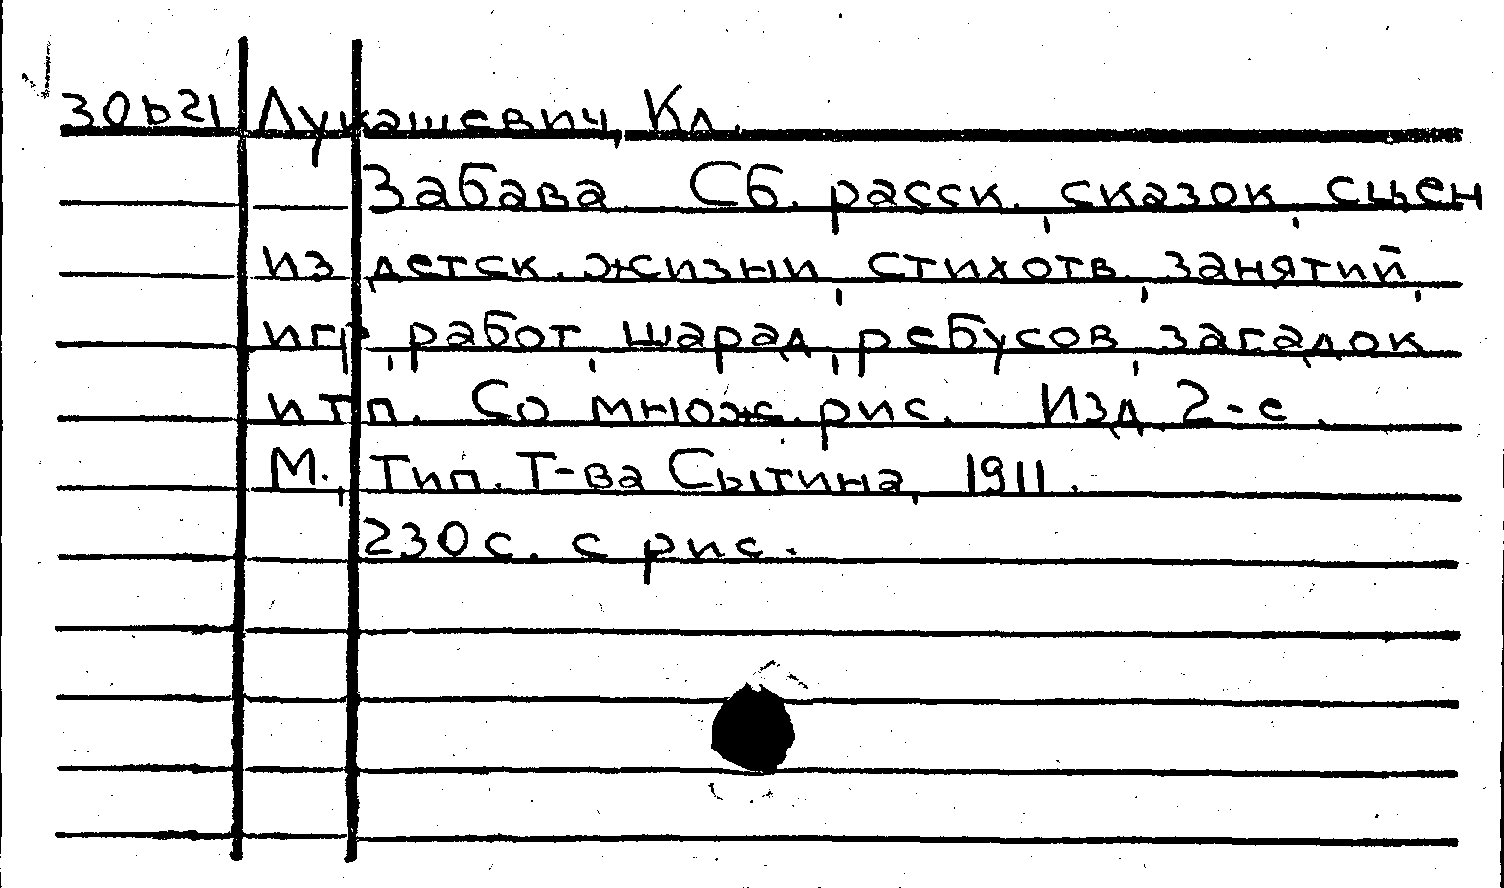 30b21 Лукашевич, Кл.
Забава Сб. расск., сказок, сцен
из детск. жизни, стихотв., занятий,
игр, работ, шарад, ребусов, загадок
и т.п. Со множ. рис. Изд. 2-е.
М., Тип. Т-ва Сытина, 1911.
230 с. с рис.